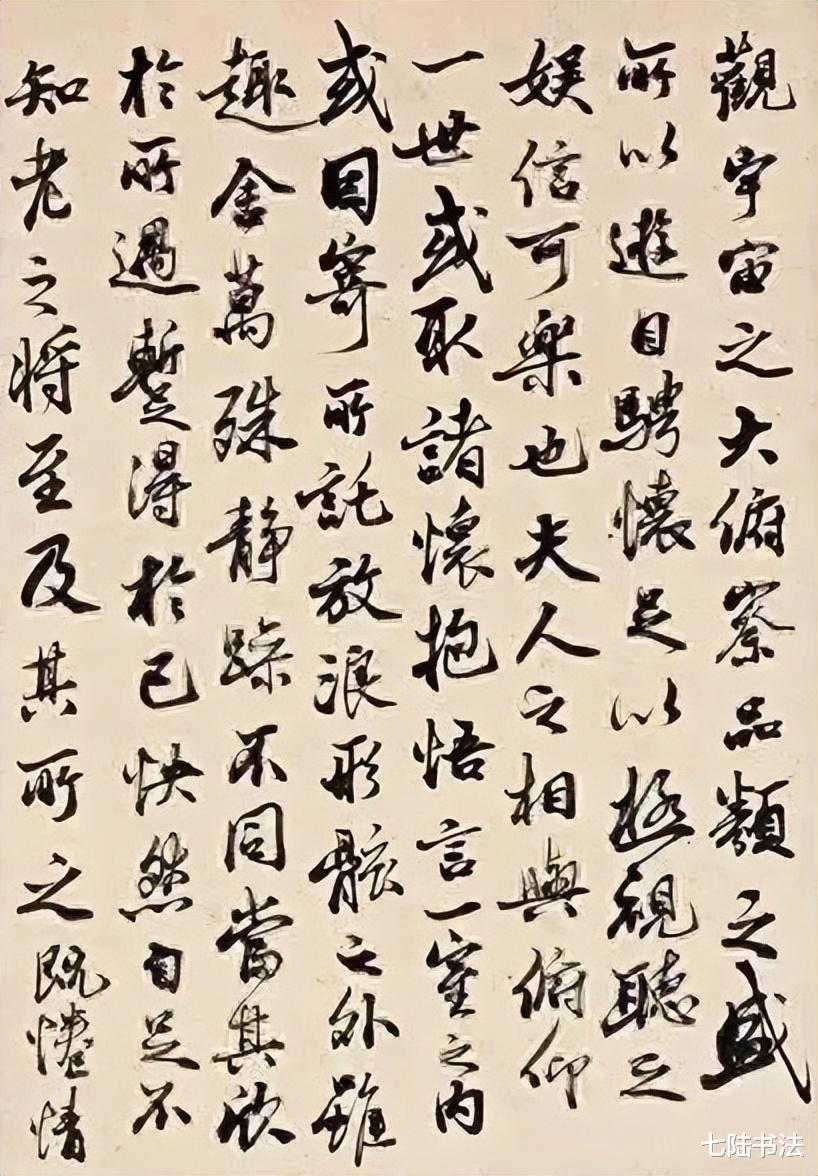 觀宇宙之大俯察品類之盛
所以遊目騁懷足以極視聽之
娛信可樂也夫人之相與俯仰
一世或取諸懷抱悟言一室之內
或因寄所託放浪形骸之外雖
趣舍萬殊靜躁不同當其欣
於所遇暫得於己怏然自足不
知老之將至及其所之既惓情
七陆书法